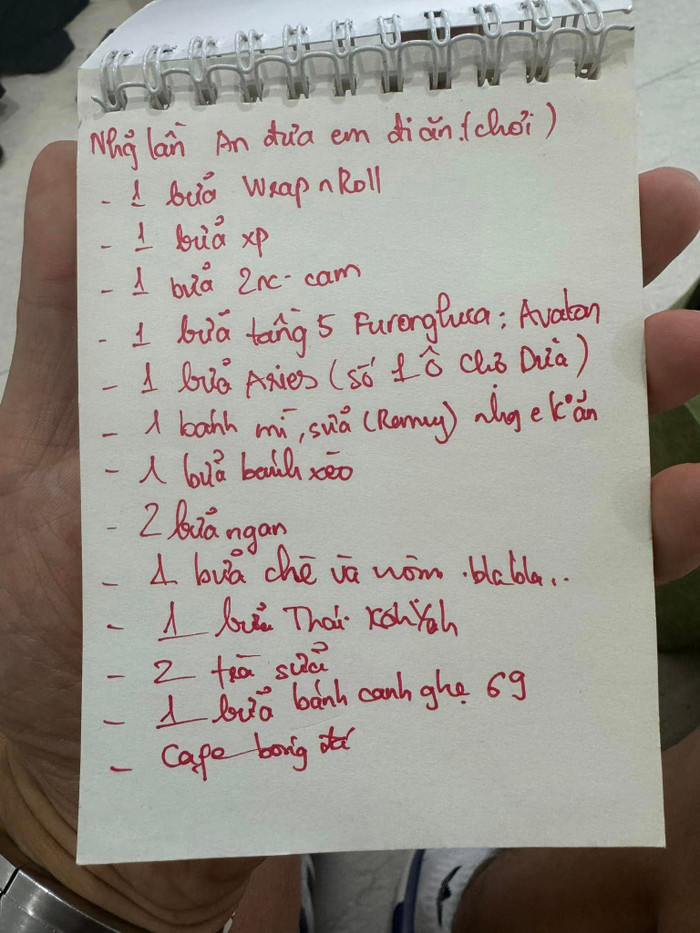 Nhg lần An đưa em đi ăn. (chơi)
- 1 bữa Wrap n Roll
- 1 bữa xp
- 1 bữa 2nc - cam
- 1 bữa tầng 5 : Avatar
- 1 bữa Aries (số 1 Ô Chợ Dừa)
- 1 bánh mì, sữa (Remy) nhg e k° ăn
- 1 bữa bánh xèo
- 2 bữa ngan
- 1 bữa chè và nộm .blabla..
- 1 bữa Thái KohYah
- 2 trà sữa
- 1 bữa bánh canh ghẹ 69
- Cafe bóng đá